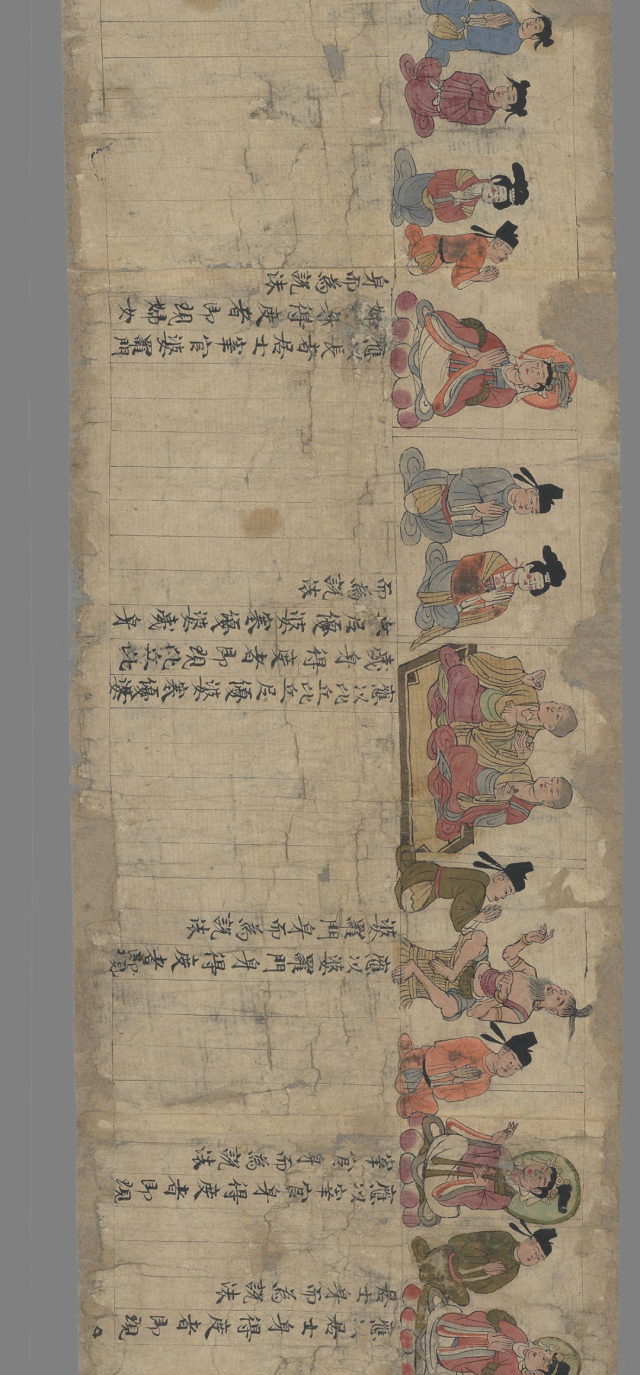 應以居士身得度者即現
居士身而為說法
應以宰官身得度者即現
宰官身而為說法
應以婆羅門身得度者即現
婆羅門身而為說法
應以比丘比丘尼優婆塞優婆
夷身得度者即現比丘比
丘尼優婆塞優婆夷身
而為說法
應以長者居士宰官婆羅門
婦女身得度者即現婦女
身而為說法